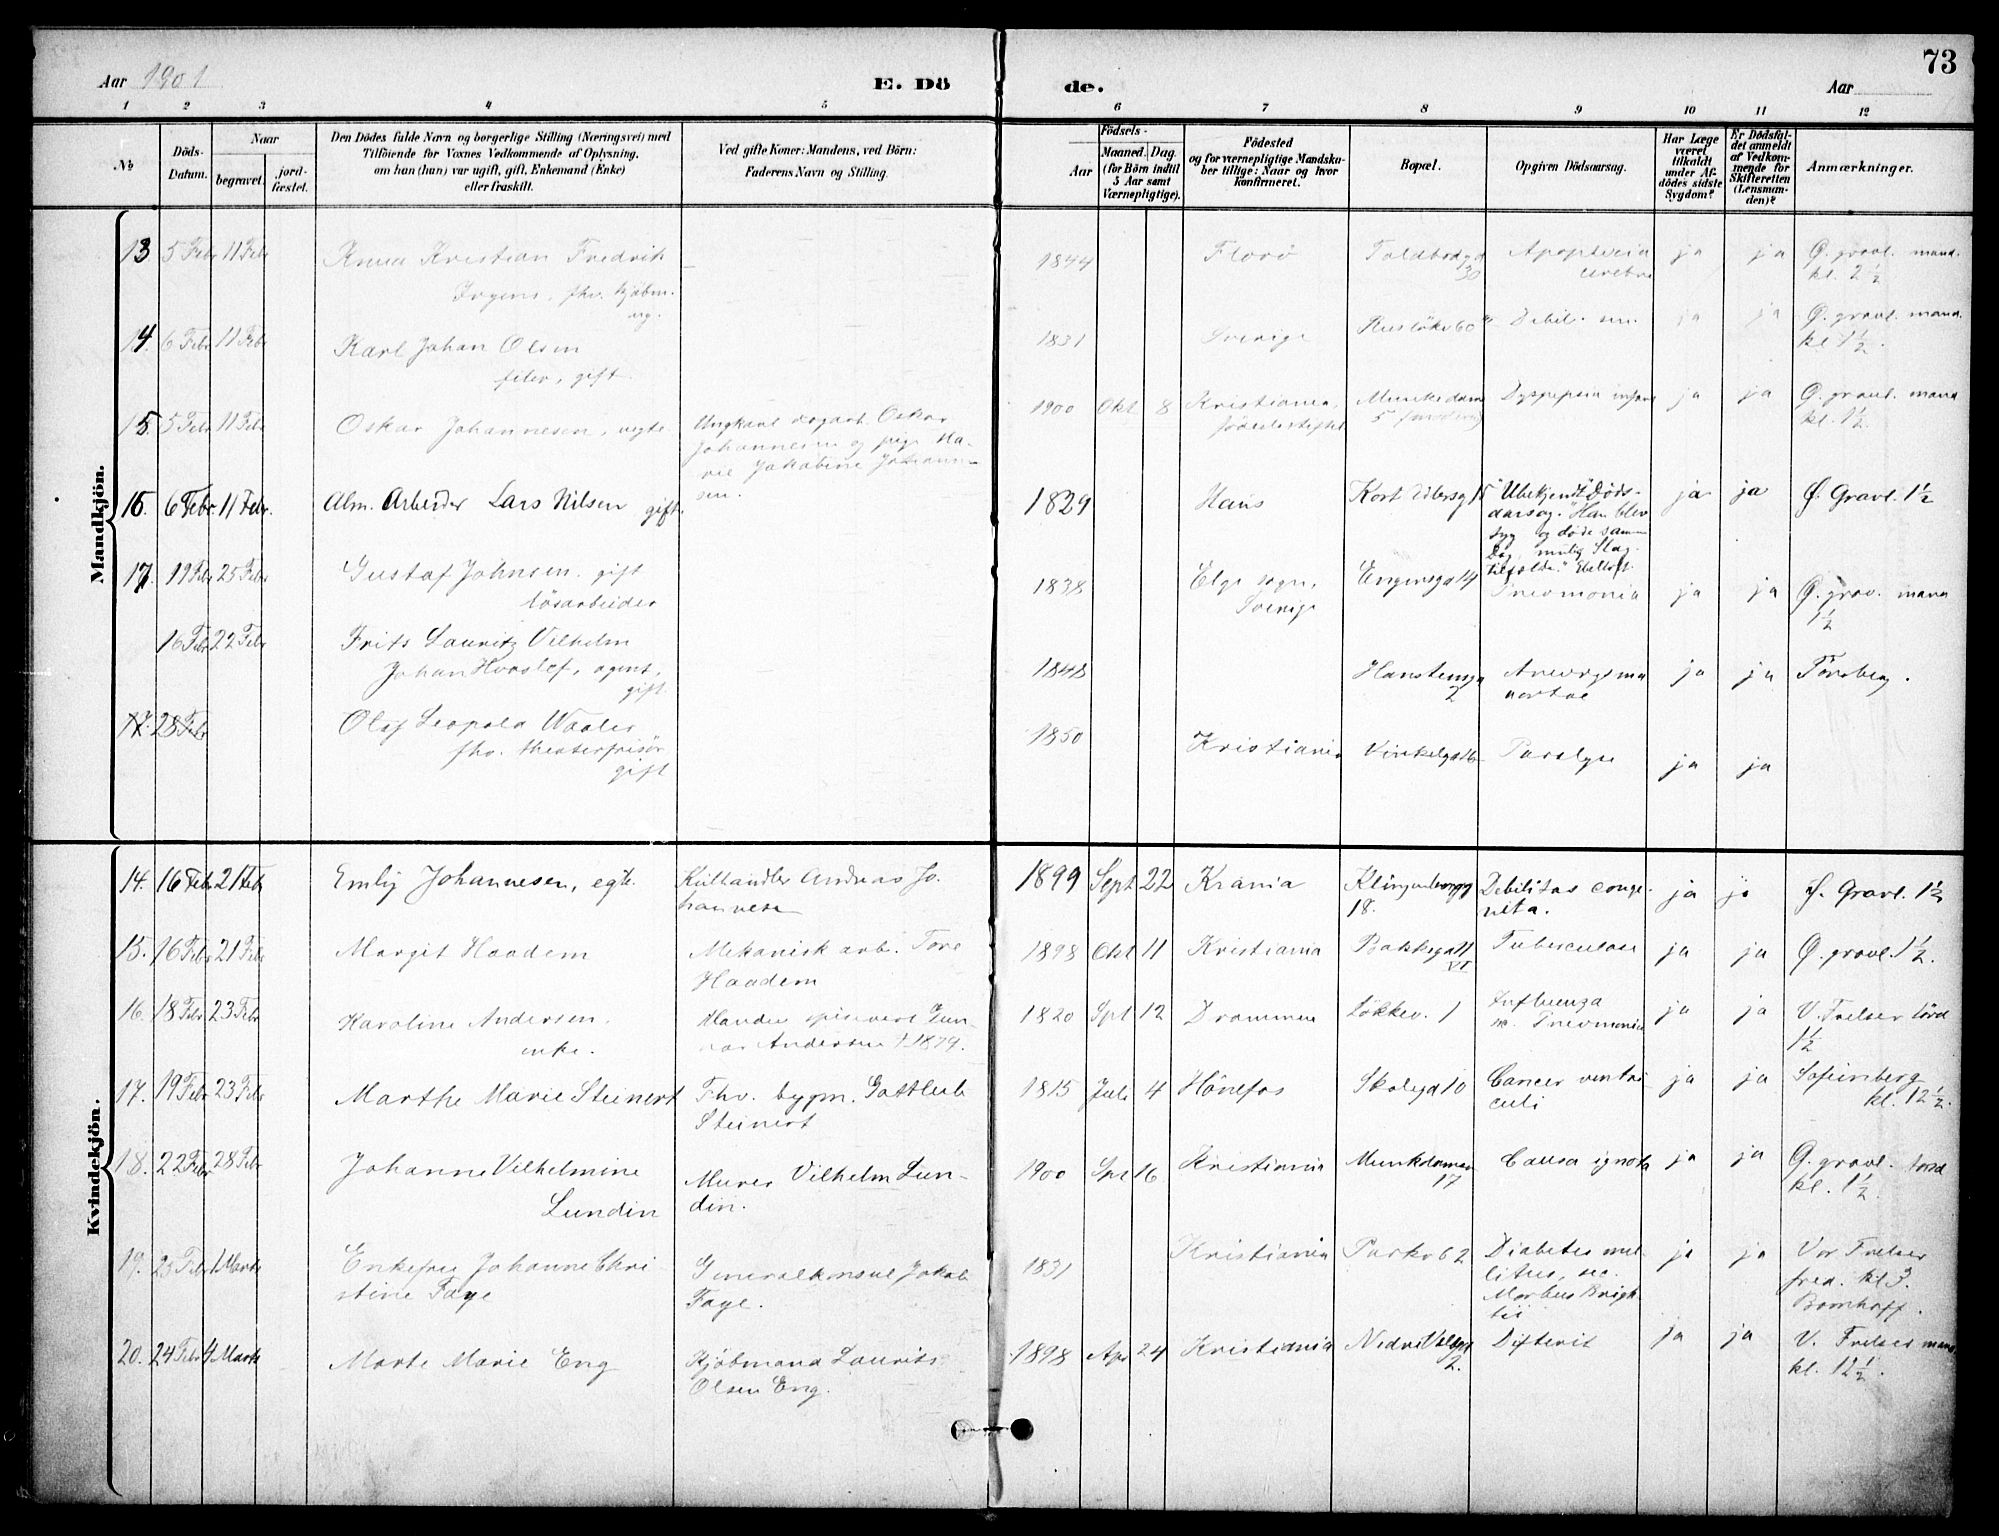 73
Aar 1901 E. Dö de. Aar
1 2 3 4 5 6 7 8 9 10 11 12
№
Döds-Datum.
Naar
begravet.
jord-fæstet.
Den Dödes fulde Navn og borgerlige Stilling (Næringsvei) med
Tilföiende for Voxnes Vedkommende af Oplysning,
om han (hun) var ugift, gift, Enkemand (Enke)
eller fraskilt.
Ved gifte Koner: Mandens, ved Börn:
Faderens Navn og Stilling.
Födsels-
Aar
Maaned. Dag.
(for Börn indtil
5 Aar samt
Værnepligtige).
Födested
og for værnepligtige Mandska-
ber tillige: Naar og hvor
konfirmeret.
Bopæl.
Opgiven Dödsaarsag.
Har Læge
været
tilkaldt
under Af-
dödes sidste
Sygdom?
Er Dödsfal-
det anmeldt
af Vedkom-
mende for
Skifteretten
(Lensman-
den)?
Anmærkninger.
Mandkjön.
13 5 Febr 11 Febr Kristian Fredrik — 1844 Florö Toldbodgd 30 ja ja Ø. gravl. mand.
Irgens, fhv. kjöbm. kl. 2½
14. 6 Febr 11 Febr Karl Johan Olsen 1831 Sverige Ruslökv 60 Debil. sen. ja ja Ø. gravl. mand.
gift. kl 1½.
15. 5 Febr 11 Febr Oskar Johannesen, uegte Ungkarl dagarb. Oskar 1900 Okt 8 Kristiania, Munkedam 5 Dyspepsia ja ja Ø. gravl. mand
Johannesen og pige Ma- födselsstiftel kl. 1½.
rie Jakobine Johanne-
sen.
16. 6 Febr 11 Febr. Alm. Arbeider Lars Nilsen gift. 1829 Hans Kort Adlersg 15 "Ubekjendt" Døds- ja ja Ø. Gravl. 1½
aarsag. "Han blev
syg og døde samme
Dag, mulig Slag-
tilfælde."
17. 19 Febr 25 Febr Gustaf Johnsen. gift 1838 Elgs sogn, Engensgd 14 Pnevmonia ja ja Ø. grav. mand
lösarbeider Sverige 1½
16 Febr 22 Febr Frits Lauritz Vilhelm
Johan Horslef, agent, 1848 Hanstensgd 2 Anevrysma ja ja Tönsberg.
gift aortae
17. 28 Febr Olaf Leopold Waaler 1850 Kristiania Vinkelgd 16 Paralyse ja ja
fhv. theaterfrisör
gift
Kvindekjön.
14. 16 Febr 21 Febr Emly Johannesen, egte. Kulhandler Andreas Jo- 1899 Sept 22 Krania Klingenbergg 18. Debilitas conge- ja ja Ø. Gravl. 1½
hannesen nita.
15. 16 Febr 21 Febr Margit Haadem Mekanisk arb. Tore 1898 Okt 11 Kristiania Bakkegd 11 VI Tuberculose ja ja Ø. gravl. 1½.
Haadem
16. 18 Febr 23 Febr Karoline Andersen. Gun- 1820 Spt 12 Drammen Løkkev. 1 Influenza ja ja V. Frelser lörd
enke. nar Andersen † 1879. m. Pnevmonia 1½
17. 19 Febr 23 Febr Marthe Marie Steinert Fhv. bygm. Gottlieb 1815 Juli 4 Hönefos Skolegd 10 Cancer ventri- ja ja Sofienberg
Steinert culi kl. 12½.
18. 22 Febr 28 Febr Johanne Vilhelmine Murer Vilhelm Lun- 1900 Spt 16 Kristiania Munkdamsv 17 Causa ignota ja ja Ø. gravl. torsd
Lundin din. kl. 1½.
19. 23 Febr 1 Marts Enkefru Johanne Chri- Generalkonsul Jakob 1831 Kristiania Parkv 62 Diabetes mel- ja ja Vor Frelser
stine Faye Faye. litus, sec. fred. kl 3.
Morbus Brigh- Bomhoff.
tii
20. 24 Febr 4 Marts Marte Marie Eng Kjöbmand Laurits 1898 Apr 24 Kristiania Nedre Voldgd 2. Difterit ja ja V. Frelser mand
Olsen Eng. kl. 12½.